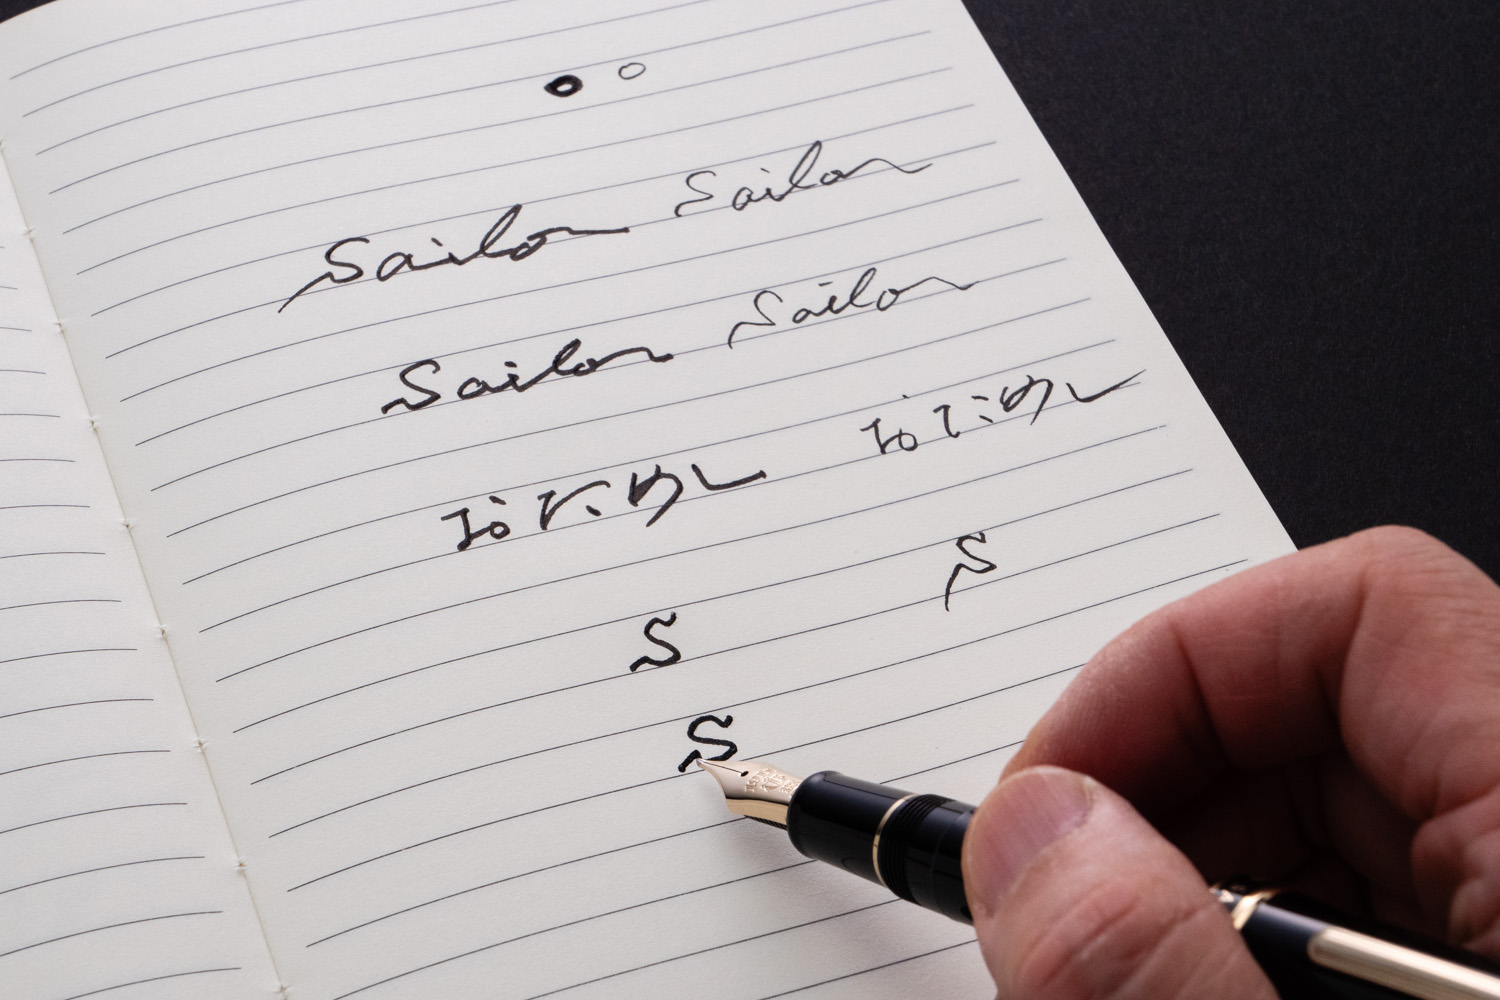 Sailor Sailor
Sailor Sailor
おためし おためし
S S
S